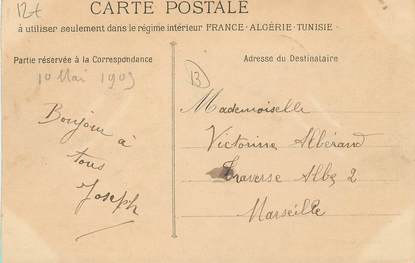 12t
CARTE POSTALE
à utiliser seulement dans le régime intérieur FRANCE-ALGÉRIE-TUNISIE
Partie réservée à la Correspondance
Adresse du Destinataire
10 Mai 1903
13
Bonjour à
tous
Joseph
Mademoiselle
Victorine Albérand
Traverse 2
Marseille